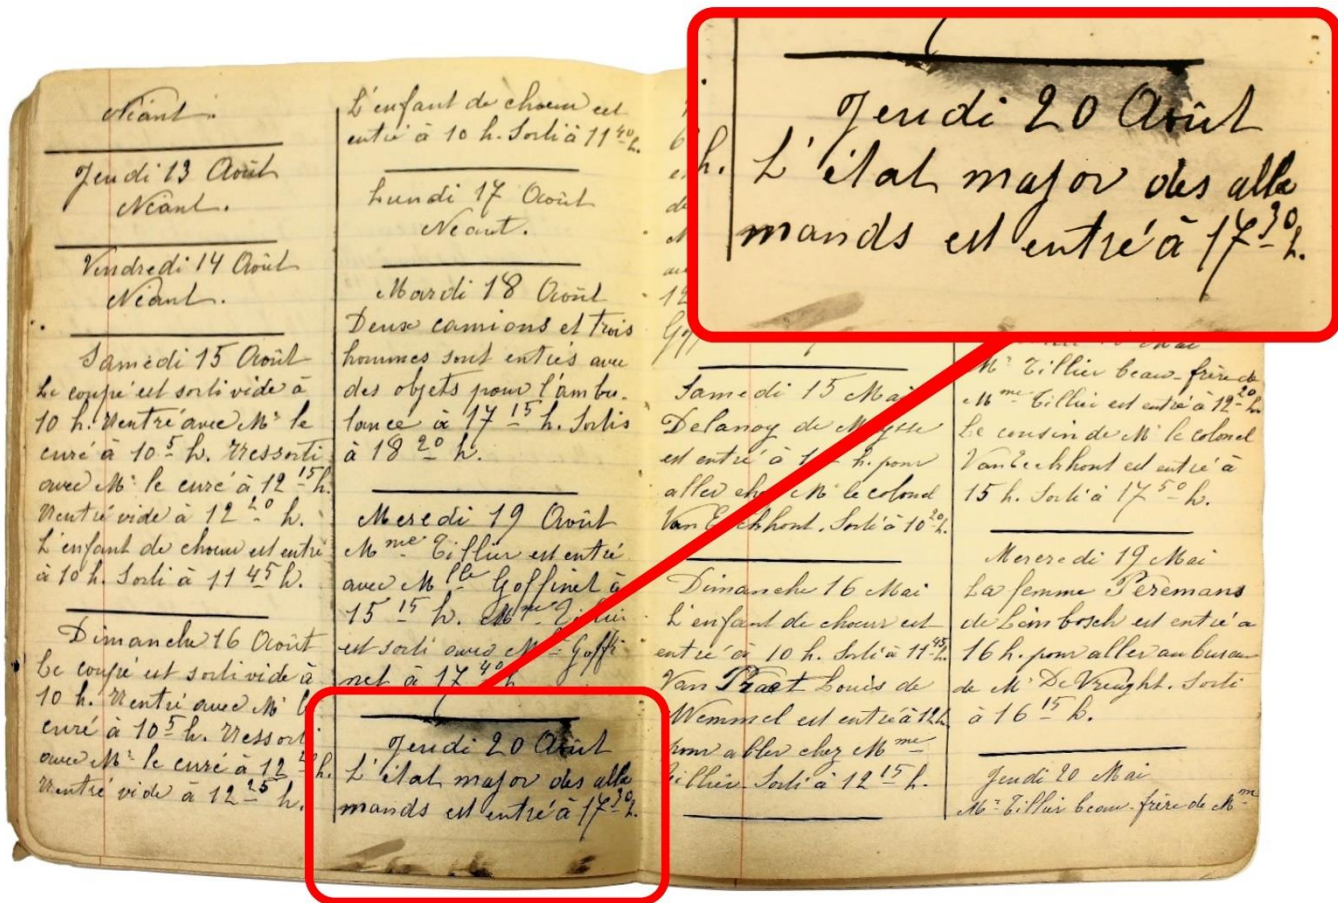 Néant.
Jeudi 13 Août
Néant.
Vendredi 14 Août
Néant.
Samedi 15 Août
Le coupé est sorti vide à
10 h. Rentré avec Mr le
curé à 10 5 h. Ressorti
avec Mr le curé à 12 15 h.
Rentré vide à 12 20 h.
L'enfant de choeur est entré
à 10 h. Sorti à 11 45 h.
Dimanche 16 Août
Le coupé est sorti vide à
10 h. Rentré avec Mr l
curé à 10 5 h. Ressorti
avec Mr le curé à 12 20 h.
Rentré vide à 12 25 h.
L'enfant de choeur est
entré à 10 h. Sorti à 11 40 h.
Lundi 17 Août
Néant.
Mardi 18 Août
Deux camions et trois
hommes sont entrés avec
des objets pour l'ambu-
lance à 17 15 h. Sortis
à 18 20 h.
Meredi 19 Août
Mme Tillier est entré
avec Mlle Goffinet à
15 15 h. Mme Tillier
est sorti avec Mlle Goffi
net à 17 40 h
Jeudi 20 Août
L'état major des alle
mands est entré à 17 30 h.
Jeudi 20 Août
L'état major des alle
mands est entré à 17 30 h.
h.
6
de
12
Goff
Samedi 15 Mai
Delanoy de Meysse
est entré à h. pour
aller chez Mr le colonel
Van Eeckhout. Sorti à 10 20 h.
Dimanche 16 Mai
L'enfant de choeur est
entré à 10 h. Sorti à 11 45 h.
Van Praet Louis de
Wemmel est entré à 12 h.
pour aller chez Mme
Tillier. Sorti à 12 15 h.
Mai
Mr Tillier beau-frère de
Mme Tillier est entré à 12 20 h.
Le cousin de Mr le colonel
Van Eeckhout est entré à
15 h. Sorti à 17 50 h.
Mercredi 19 Mai
La femme Péremans
de Limbosch est entré à
16 h. pour aller au bureau
de Mr De Vreught. Sorti
à 16 15 h.
Jeudi 20 Mai
Mr Tillier beau-frère de Mme